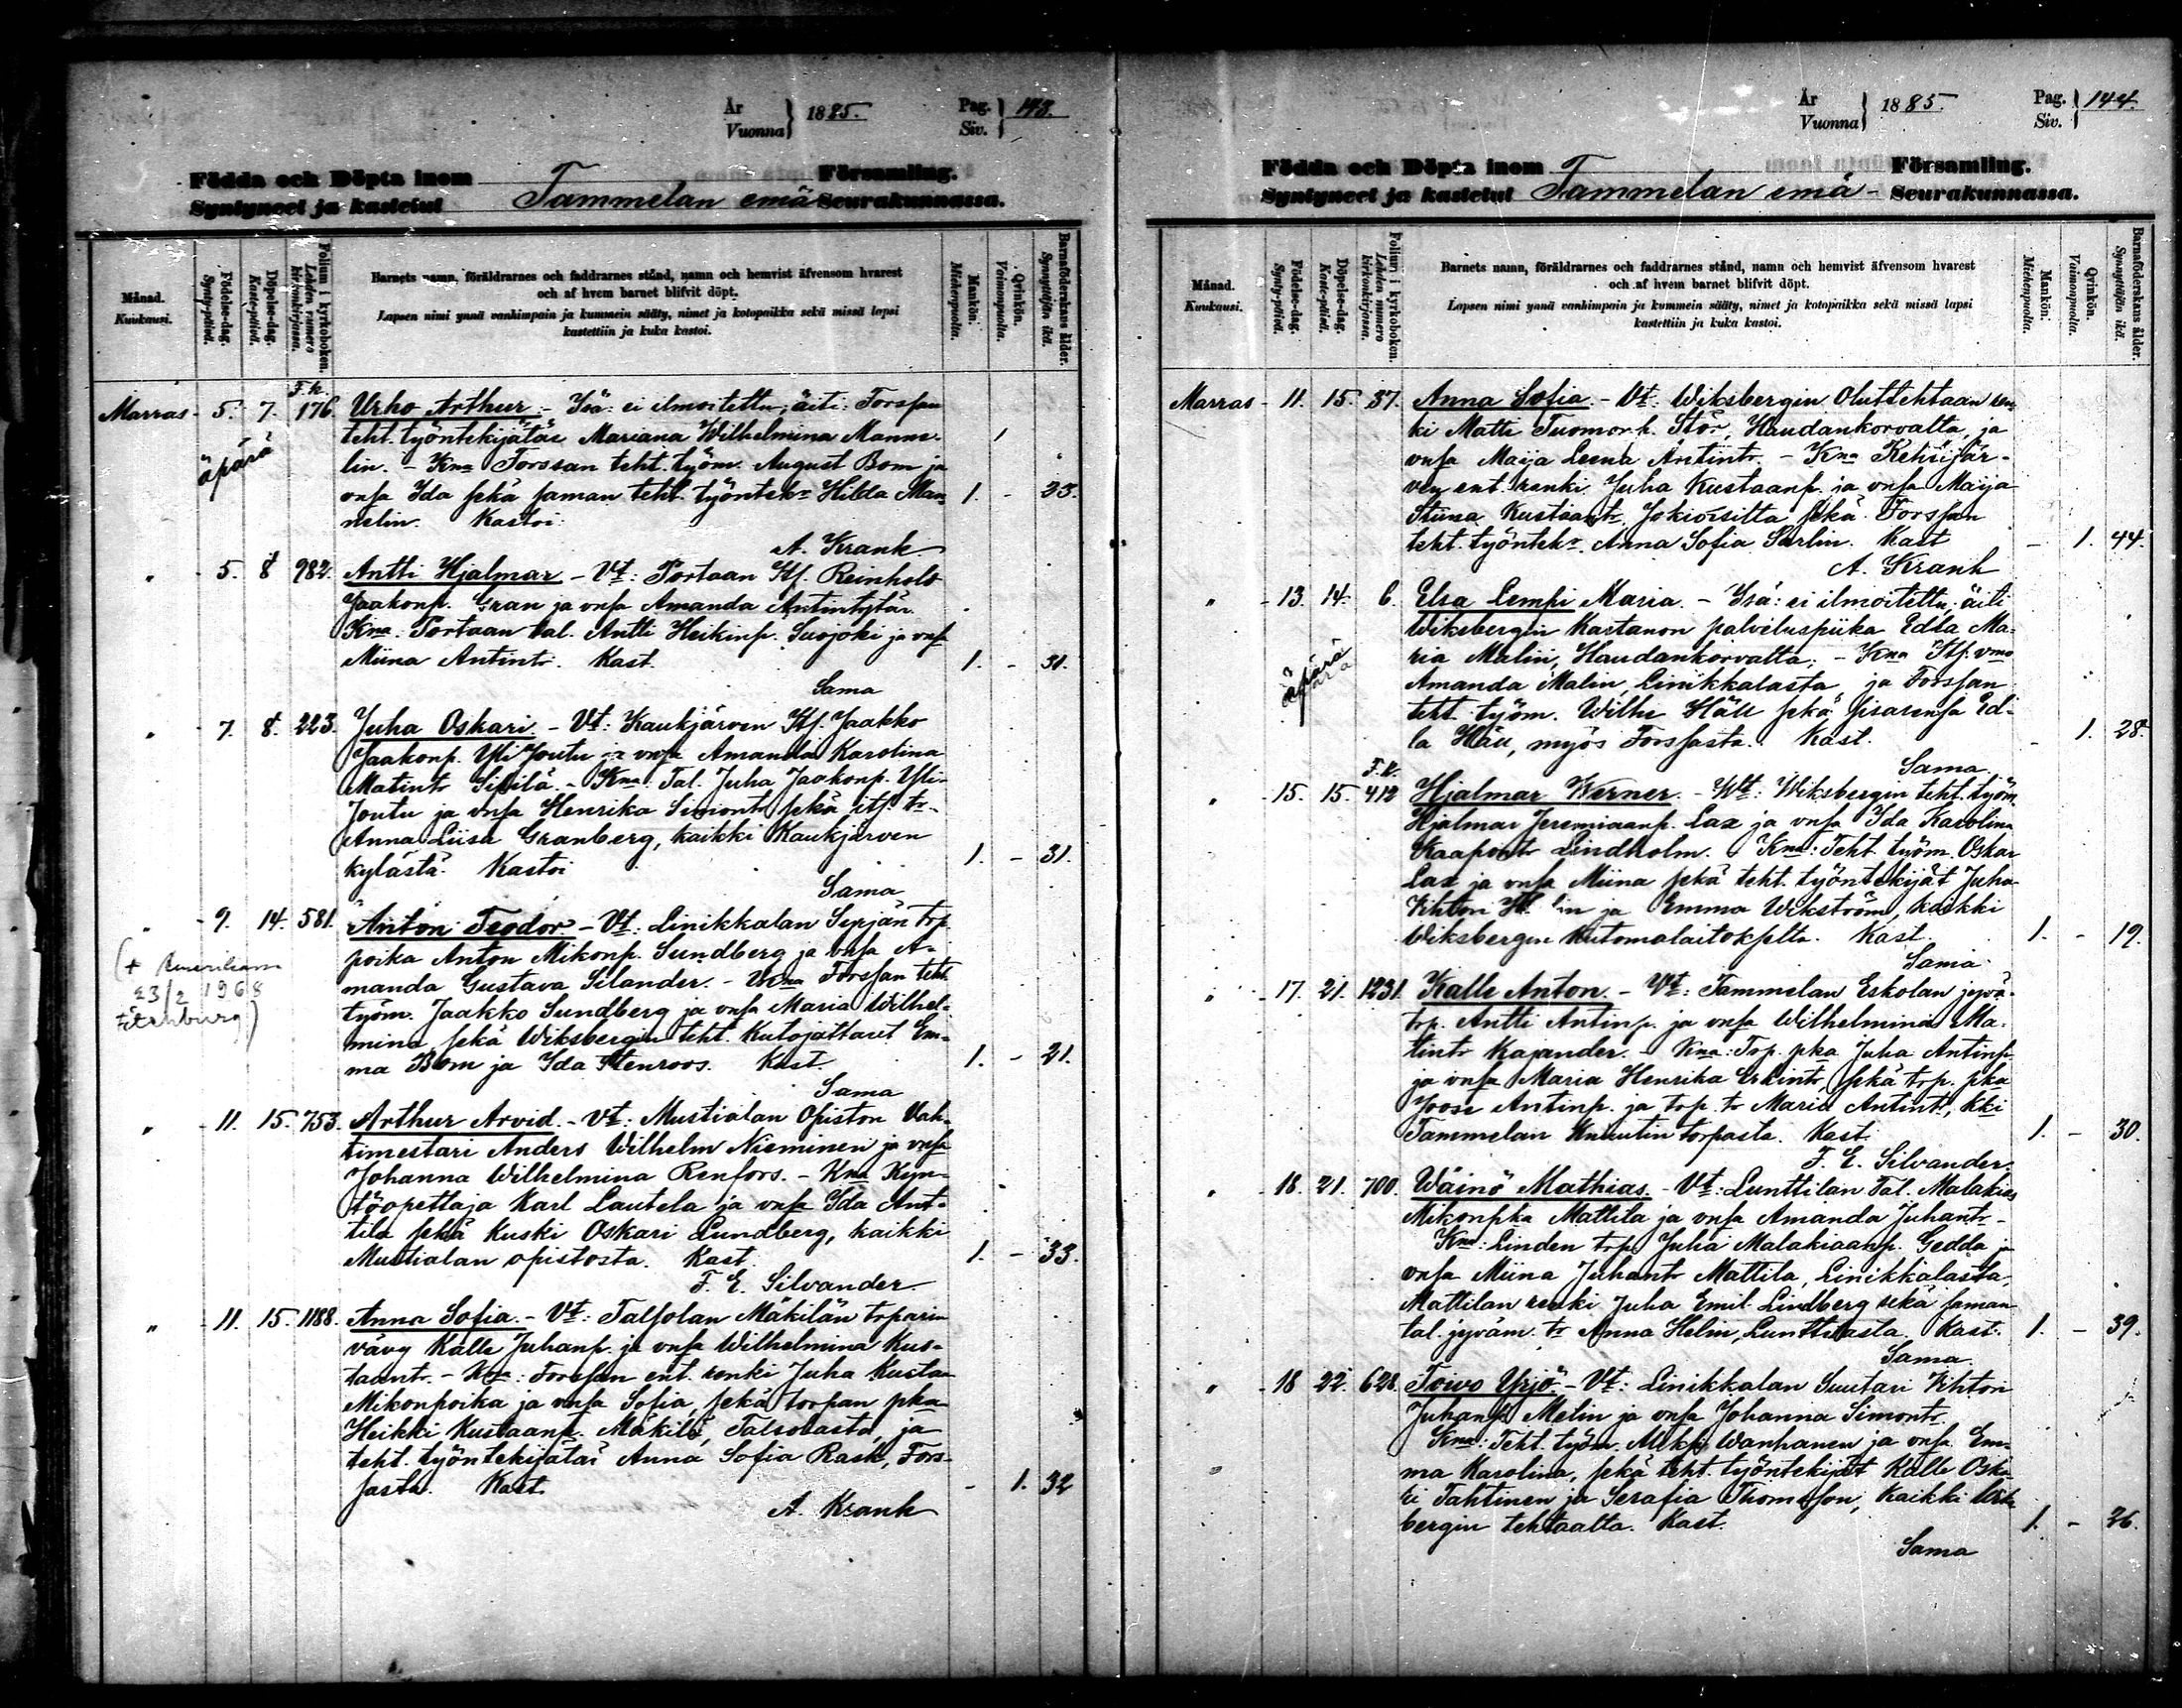 År
Vuonna } 1885. Pag.
Siv. } 143.
Födda och Döpta inom Församling.
Syntyneet ja kastetut Tammelan emä Seurakunnassa.
Månad.
Kuukausi.
Födelse-dag.
Synty-päivä.
Döpelse-dag.
Kaste-päivä.
Folium i kyrkoboken.
Lehden numero
kirkonkirjassa.
Barnets namn, föräldrarnes och faddrarnes stånd, namn och hemvist äfvensom hvarest
och af hvem barnet blifvit döpt.
Lapsen nimi ynnä vanhimpain ja kummein sääty, nimet ja kotopaikka sekä missä lapsi
kastettiin ja kuka kastoi.
Mankön.
Miehenpuolta.
Qvinkön.
Vaimonpuolta.
Barnaföderskans ålder.
Synnyttäjän ikä.
F. k.
Marras - 5. 7. 176. Urho Arthur. - Isä: ei ilmoitettu; äiti: Forssan
teht. työntekijätär Mariana Wilhelmina Manne-
äpärä
lin. - Kna Forssan teht. työm. August Bom ja
vsa Ida sekä saman teht. työntek:r Hilda Man- 1. - 23.
nelin. Kastoi:
A. Krank
" - 5. 8 982. Antti Hjalmar - Vt: Portaan Itf. Reinhold
Jaakonp. Gran ja vsa Amanda Antintytär
Kna: Portaan tal. Antti Heikinp. Suojoki ja vsa
Miina Antintr. Kast. 1. - 31.
Sama
" - 7. 8. 223. Juha Oskari. - Vt: Kaukjärven Itf. Jaakko
Jaakonp. Yli Joutu ja vsa Amanda Karolina
Matintr Sipilä - Kna: Tal. Juha Jaakonp. Yli-
Joutu ja vsa Henrika Simontr sekä itf. tr.
Anna Liisa Granberg, kaikki Kaukjärven
kylästä. Kastoi 1. - 31.
Sama
" - 9. 14. 581. Anton Teodor. - Vt: Linikkalan Syrjän trp.
poika Anton Mikonp. Sundberg ja vsa A-
manda Gustava Silander. - Kna Forssan teht.
(+ Amerikassa
23/2 1968
Fitchburg)
työm. Jaakko Sundberg ja vsa Maria Wilhel-
mina sekä Wiksbergin teht. Kutojattaret Em-
ma Bom ja Ida Stenroos. Kast. 1. - 21.
Sama
" - 11. 15. 753. Arthur Arvid. - Vt: Mustialan Opiston Vah-
timestari Anders Wilhelm Nieminen ja vsa
Johanna Wilhelmina Renfors. - Kna Kyn-
töopettaja Karl Lautela ja vsa Ida Ant-
tila sekä Kuski Oskari Lundberg, kaikki
Mustialan opistosta. Kast. 1. - 33.
F. E. Silvander
" - 11. 15. 1188. Anna Sofia. - Vt: Talsolan Mäkilän trparin
vävy Kalle Juhanp. ja vsa Wilhelmina Kus-
taantr. - Kna: Forssan ent. renki Juha Kustaa
Mikonpoika ja vsa Sofia, sekä torpan pka
Heikki Kustaanp. Mäkilä, Talsolasta, ja
teht. työntekijätär Anna Sofia Rask, Fors-
sasta. Kast. - 1. 32
A. Krank
År
Vuonna } 1885. Pag.
Siv. } 144.
Födda och Döpta inom Församling.
Syntyneet ja kastetut Tammelan emä - Seurakunnassa.
Månad.
Kuukausi.
Födelse-dag.
Synty-päivä.
Döpelse-dag.
Kaste-päivä.
Folium i kyrkoboken.
Lehden numero
kirkonkirjassa.
Barnets namn, föräldrarnes och faddrarnes stånd, namn och hemvist äfvensom hvarest
och af hvem barnet blifvit döpt.
Lapsen nimi ynnä vanhimpain ja kummein sääty, nimet ja kotopaikka sekä missä lapsi
kastettiin ja kuka kastoi.
Mankön.
Miehenpuolta.
Qvinkön.
Vaimonpuolta.
Barnaföderskans ålder.
Synnyttäjän ikä.
Marras - 11. 15. 37. Anna Sofia - Vt. Wiksbergin Oluttehtaan ren-
ki Matti Tuomonp. Stör, Haudankorvalta, ja
vsa Maija Leena Antintr. - Kna Kehrijär-
ven ent. renki Juha Kustaanp. ja vsa Maija
Stiina Kustaantr, Jokioisitta sekä Forssan
teht. työntek:r Anna Sofia Sarlin. Kast - 1. 44.
A. Krank
" - 13. 14. 6. Elsa Lempi Maria. - Isä: ei ilmoitettu; äiti
Wiksbergin Kartanon palveluspiika Edla Ma-
äpärä
ria Malin, Haudankorvalta. - Kna Itf. vmo
Amanda Malin, Linikkalasta ja Forssan
teht. työm. Wilhe Häll sekä sisarensa Ed-
la Häll, myös Forssasta. Kast. - 1. 28.
Sama.
F. k.
" - 15. 15. 412 Hjalmar Werner. - Vt: Wiksbergin teht. työm.
Hjalmar Jeremiaanp. Lax ja vsa Ida Karolina
Kaapontr Lindholm. Kna: Teht. työm. Oskar
Lax ja vsa Miina sekä teht. työntekijät Juha
Vihtori ja Emma Wikström, kaikki
Wiksbergin Kutomalaitokselta. Kast. 1. - 19.
Sama
" - 17. 21. 1231. Kalle Anton. - Vt: Tammelan Eskolan jyvä-
trp. Antti Antinp. ja vsa Wilhelmina Ma-
tintr Kajander. - Kna: Trp. pka Juha Antinp.
ja vsa Maria Henrika Erkintr, sekä trp. pka
Joose Antinp. ja trp. tr Maria Antintr, kki
Tammelan Knuutin torpasta. Kast. 1. - 30.
F. E. Silvander.
" - 18. 21. 700. Wäinö Mathias. - Vt: Lunttilan Tal. Malakias
Mikonpka Mattila ja vsa Amanda Juhantr -
Kna: Linden trp. Juha Malakiaanp. Gedda ja
vsa Miina Juhantr Mattila, Linikkalasta,
Mattilan renki Juha Emil Lindberg sekä saman
tal. jyväm. tr Anna Helin, Lunttilasta. Kast. 1. - 39.
Sama.
" - 18 22. 628. Toivo Yrjö. - Vt: Linikkalan Suutari Vihtori
Juhanp. Melin ja vsa Johanna Simontr.
Kna: Teht. työm. Wanhanen ja vsa Em-
ma Karolina, sekä teht. työntekijät Kalle Oska-
ri Tahtinen ja Serafia Thomsson, kaikki Wiks-
bergin tehtaalta. Kast. 1. - 36.
Sama